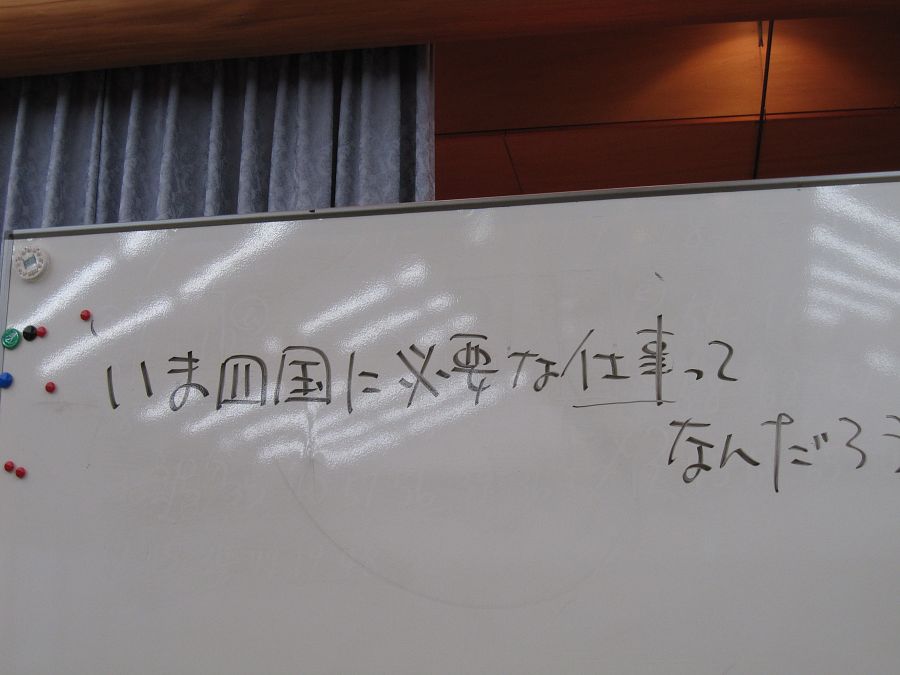 いま四国に必要な仕事って
なんだろう